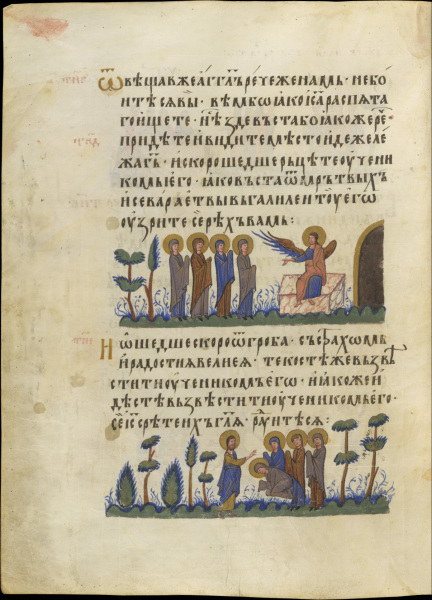 Ѿвѣщавже аг҃глъ рече женамь · не бо
ите сѧ вы · вѣмь бѡ ꙗко іс҃а распѧта
го ищете · нѣ зде въста бо ꙗкоже рече ·
придѣте и видите мѣсто идеже ле
жа г҃ь · и скоро шедше рьцѣте оучени
комь его · ꙗко въста ѿ мрътвыхъ
и се варѣетъ вы въ галилеи тоу его
оузрите се рѣхъ вамь :
И ѡшедше скоро ѿ гроба · съ страхѡмь
и радостиѫ велиеѫ · текостѣ же възвѣ
стити оученикомь его · и ꙗкоже и
дѣстѣ възвѣстити оученикомь его ·
се іс҃ срѣте ихъ гл҃ѧ · радꙋитесѧ